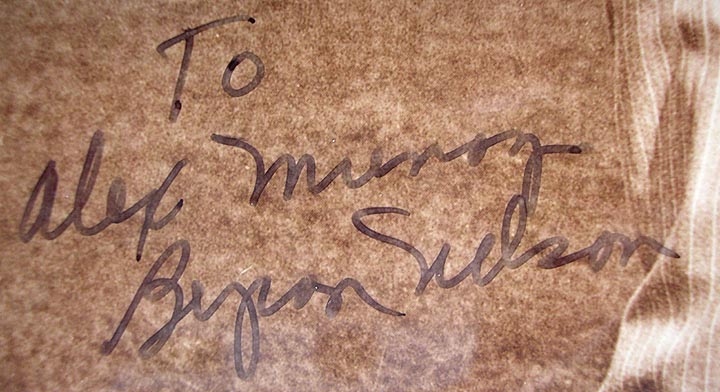 To
Alex Munoz
Byron Nelson